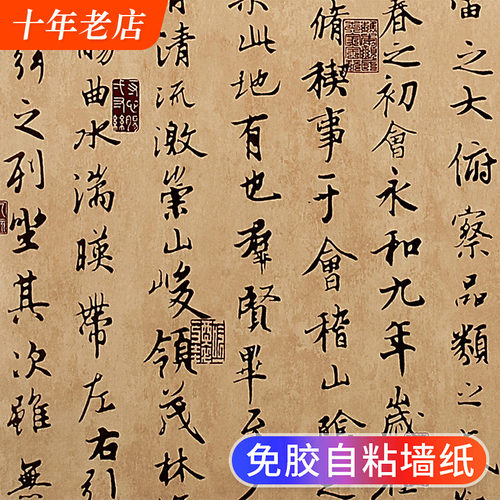 十年老店
之大俯察品類之
春之初會永和九年歲
脩稧事于會稽山陰之
此地有也羣賢畢至
有清流激崇山峻領茂林
觴曲水湍暎帶左右引
之列坐其次雖無
免胶自粘墙纸